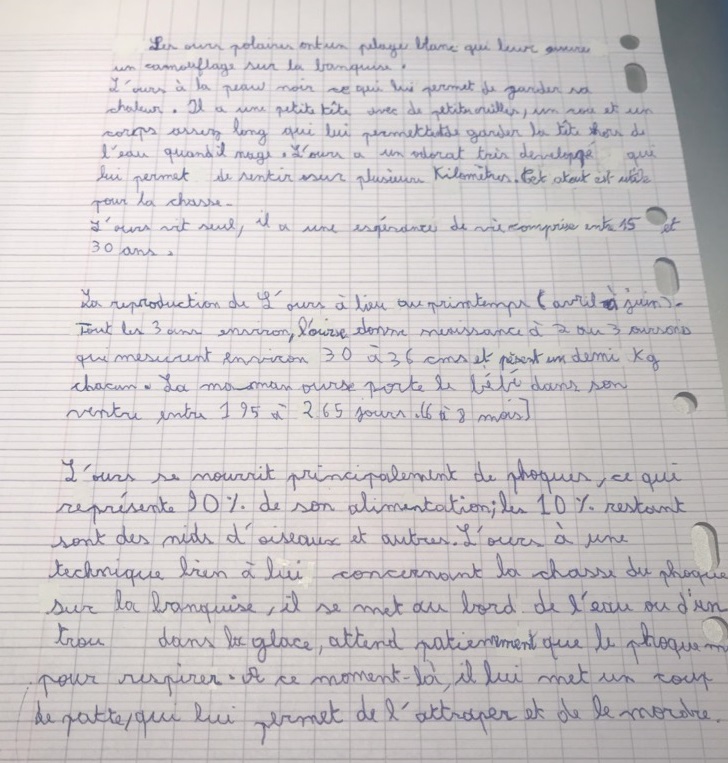 Les ours polaires ont un pelage blanc qui leur assure
un camouflage sur la banquise.
L'ours à la peau noir ce qui lui permet de garder sa
chaleur. Il a une petite tête avec de petites oreilles, un cou et un
corps assez long qui lui permettent de garder la tête hors de
l'eau quand il nage. L'ours a un odorat très développé qui
lui permet de sentir sur plusieurs Kilomètres. Cet atout est utile
pour la chasse.
L'ours vit seul, il a une espérance de vie comprise entre 15 et
30 ans.
La reproduction de L'ours à lieu au printemps (avril à juin).
Tout les 3 ans environ, l'ourse donne naissance à 2 ou 3 oursons
qui mesurent environ 30 à 36 cms et pèsent un demi Kg
chacun. La maman ourse porte le bébé dans son
ventre entre 195 à 265 jours. (6 à 8 mois)
L'ours se nourrit principalement de phoques, ce qui
représente 90% de son alimentation; les 10% restant
sont des nids d'oiseaux et autres. L'ours à une
technique bien à lui concernant la chasse du phoque
sur la banquise, il se met au bord de l'eau ou d'un
trou dans la glace, attend patiemment que le phoque
pour respirer. A ce moment-là, il lui met un coup
de patte, qui lui permet de l'attraper et de le mordre.